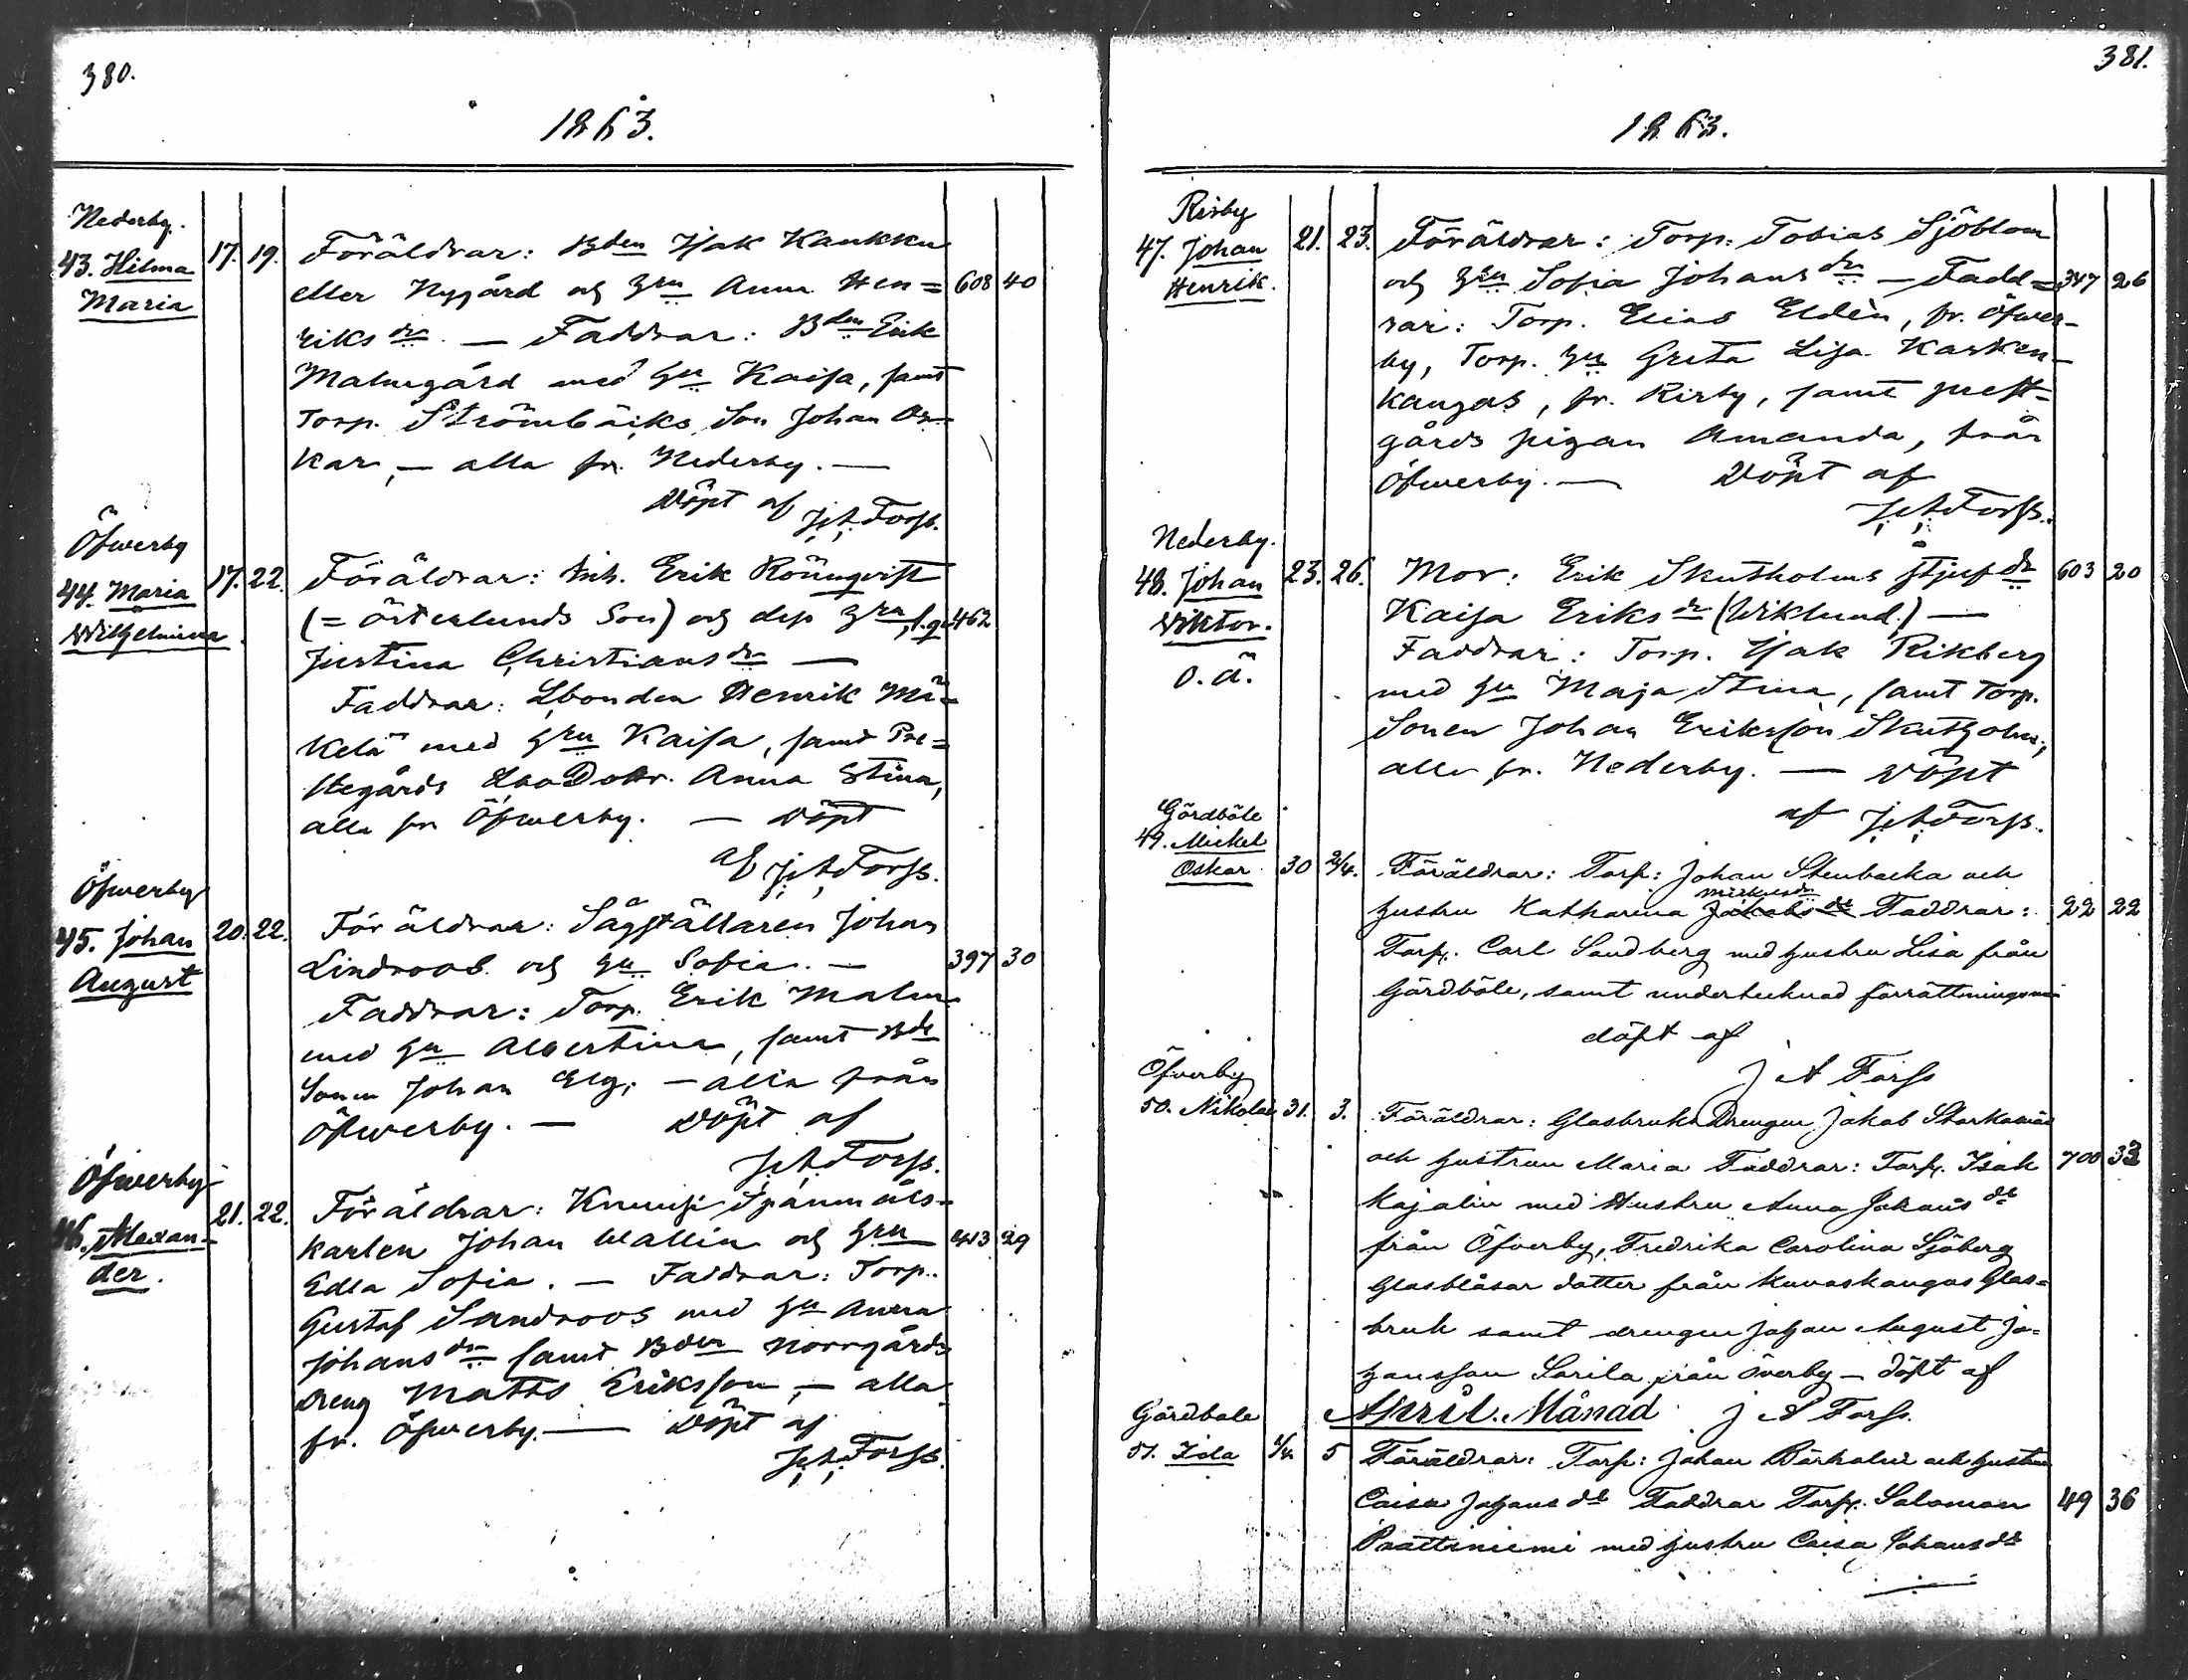 380.
1863.
Nederby.
43. Hilma
Maria
17. 19.
Föräldrar: Bden Isak Kaukku
eller Nygård och Hru Anna Hen= 608 40
riks dr. — Faddrar: Bden Erik
Malmgård med Hu Kaisa, samt
Torp. Strömbäcks Son Johan Os-
kar, — alla fr. Nederby. —
Döpt af J. A. Forss.
Öfwerby
44. Maria
Wilhelmina
17. 22.
Föräldrar: Inh. Erik Rönnqvist
(= Österlunds Son) och dess Hru, 462
Justina Christians dr —
Faddrar: Lbonden Henrik Mä-
kelä med Hru Kaisa, samt Pre=
stegårds Anna Stina,
alla fr Öfwerby. — Döpt
af J. A. Forss.
Öfwerby
45. Johan
August
20. 22.
Föräldrar: Sågställaren Johan
Lindroos och Hu Sofia. — 397 30
Faddrar: Torp. Erik Malm
med Hu Albertina, samt Bde
Sonen Johan Elg; — alla från
Öfwerby. — Döpt af
J. A. Forss.
Öfwerby
46. Alexan-
der.
21. 22.
Föräldrar: Spannmåls-
karlen Johan Wallin och Hru 413 29
Edla Sofia. — Faddrar: Torp.
Gustaf Sandroos med Hu Anna
Johans dr samt Bden Norrgårds
dreng Matts Eriksson, — alla
fr. Öfwerby. — Döpt af
J. A. Forss.
381.
1863.
Risby
47. Johan
Henrik.
21. 23.
Föräldrar: Torp. Tobias Sjöblom
och Hru Sofia Johans dr — Fadd= 347 26
rar: Torp. Elias Eldén, fr. Öfwer-
by, Torp. Hu Greta Lisa Karken-
kangas, fr. Risby, samt prest-
gårds pigan Amanda, från
Öfwerby. — Döpt af
J. A. Forss.
Nederby.
48. Johan
Wiktor.
o. ä.
23. 26.
Mor: Erik Skutholms stjufdr 603 20
Kaisa Eriks dr (Wiklund.) —
Faddrar: Torp. Isak Rikberg
med Hu Maja Stina, samt Torp.
Sonen Johan Eriksson Skutholm;
alla fr. Nederby. — Döpt
af J. A. Forss.
Gårdböle
49. Mickel
Oskar
30 2/4.
Föräldrar: Torp: Johan Stenbacka och
Mickelsdr
hustru Katharina Jakobs dr Faddrar: 22 22
Torp. Carl Sandberg med hustru Lisa från
Gårdböle, samt undertecknad förrättningsman
döpt af
J A Forss
Öfverby
50. Nikolai 31. 3.
Föräldrar: Glasbruks Drengen Jakob
och hustrun Maria Faddrar: Torp. Isak 700 33
Kajalin med Hustru Anna Johans dr
från Öfverby, Fredrika Carolina Sjöberg
Glasblåsar dotter från Kuvaskangas Glas=
bruk samt drengen Johan August Jo=
hansson Sorila från Överby — döpt af
April. Månad J A Forss.
Gårdböle
51. Ida 1/4. 5
Föräldrar: Torp: Johan och hustru
Caisa Johans dr Faddrar Torp. Salomon 49 36
Paattiniemi med hustru Caisa Johansdr